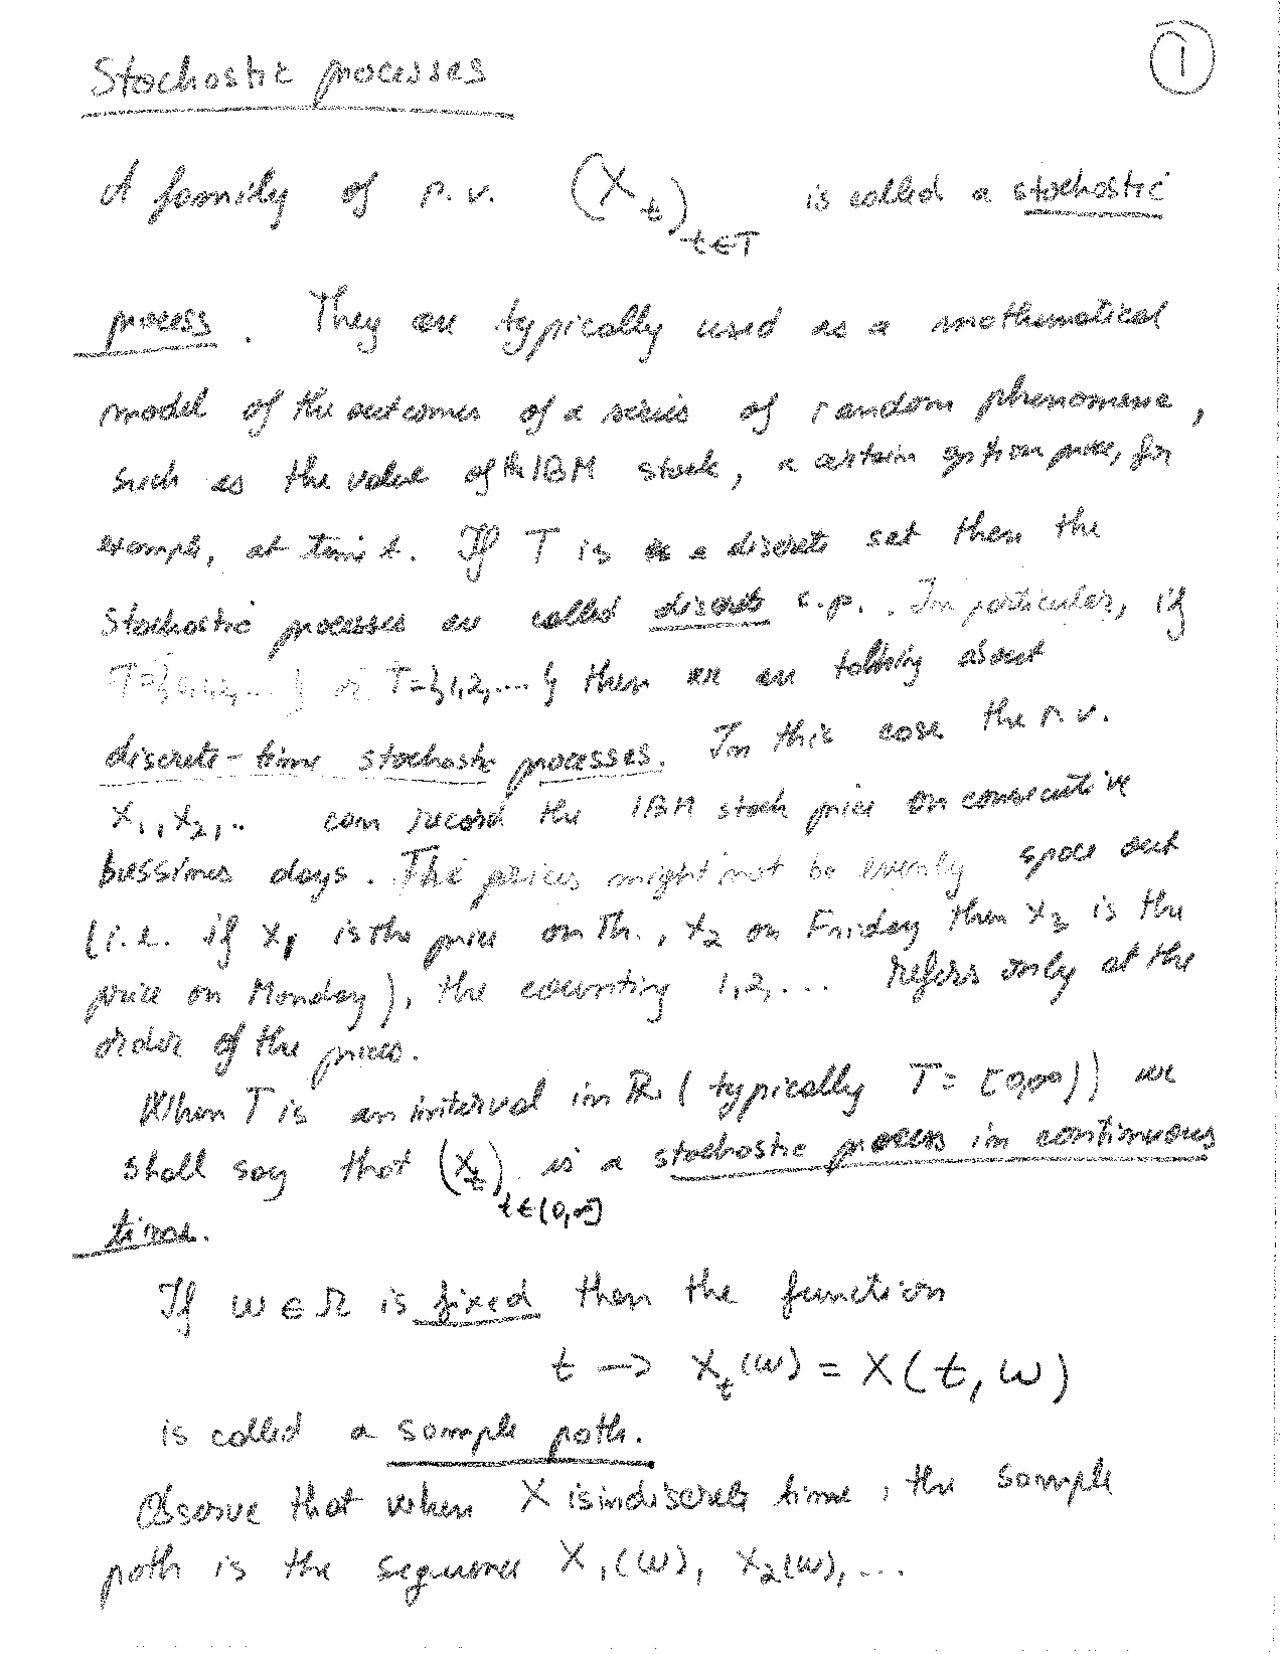 Stochastic processes
1
A family of r.v. (X_t)_{t∈T} is called a stochastic
process. They are typically used as a mathematical
model of the outcomes of a series of random phenomena,
such as the value of the IBM stock, a certain option price, for
example, at time t. If T is a discrete set then the
stochastic processes are called discrete s.p.. In particular, if
T={0,1,2,...} or T={1,2,...} then we are talking about
discrete-time stochastic processes. In this case the r.v.
X_1, X_2, .. can record the IBM stock price on consecutive
bussines days. The prices might not be evenly space out
(i.e. if X_1 is the price on Th., X_2 on Friday then X_3 is the
price on Monday), the counting 1,2,... refers only at the
order of the prices.
When T is an interval in R (typically T=[0,∞)) we
shall say that (X_t)_{t∈[0,∞)} is a stochastic process in continuous
time.
If ω∈Ω is fixed then the function
t → X_t(ω) = X(t,ω)
is called a sample path.
Observe that when X is in discrete time, the sample
path is the sequence X_1(ω), X_2(ω),...